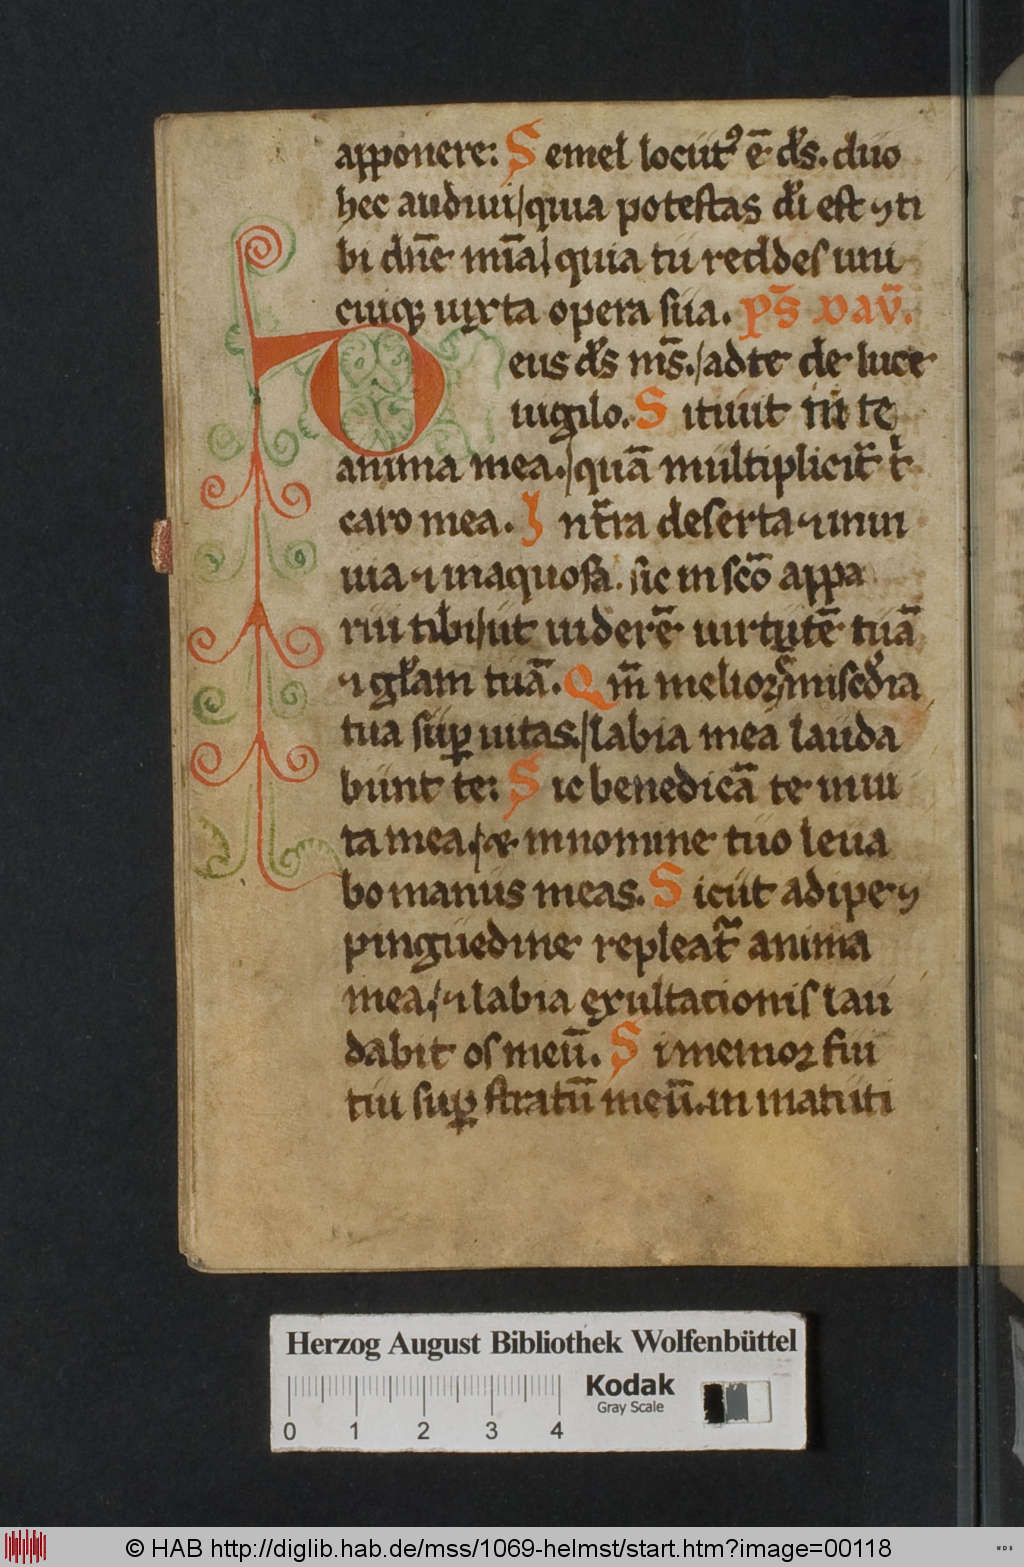 apponere: Semel locut᷒ ē ds̄. duo
hec audiui/ quia potestas dī est ⁊ ti
bi dn̄e mīa/ quia tu reddes uni
cuiqꝫ iuxta opera sua. ps̄ dav̄.
Deus ds̄ ms̄./ ad te de luce
uigilo. Sitiuit in te
anima mea./ quā multiplicit̄ t̄
caro mea. In t̄ra deserta ⁊ inin
uia ⁊ inaquosa. sic in scō appa
rui tibi/ ut uiderē uirtutē tuā
⁊ gl̄am tuā. Qm̄ melior ē misc̄dia
tua sup̱ uitas./ labia mea lauda
bunt te: Sic benedicā te in ui
ta mea./ & in nomine tuo leua
bo manus meas. Sicut adipe ⁊
pinguedine repleat̄ anima
mea./ ⁊ labia exultationis lau
dabit os meū. Si memor fui
tui sup̱ stratū meū. in matuti
Herzog August Bibliothek Wolfenbüttel
Kodak
Gray Scale
0 1 2 3 4
© HAB http://diglib.hab.de/mss/1069-helmst/start.htm?image=00118